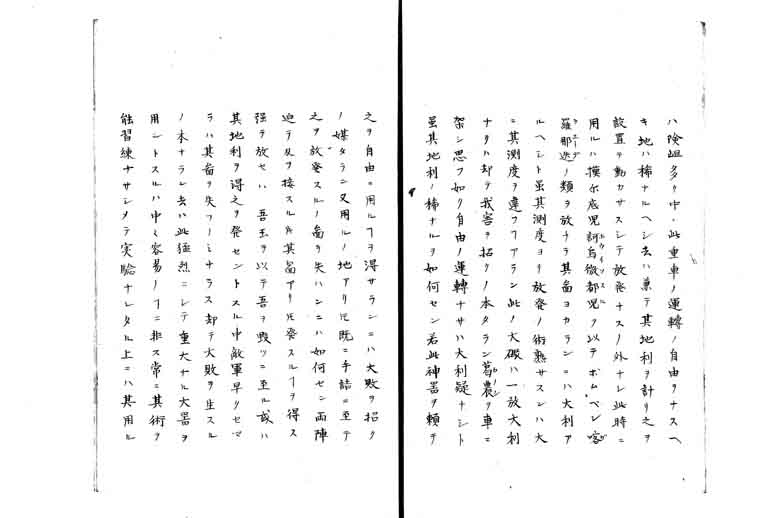 ハ険岨多ク中々此重車ノ運轉ノ自由ヲナスヘ
キ地ハ稀ナルヘシ去ハ兼テ其地利ヲ計リ之ヲ
設置テ動カサスシテ放発ナスノ外ナシ此時ニ
用ルハ摸尓底児訶烏微都児ヲ以テボムベン喀
羅那迭ノ類ヲ放ナラ其畐ヨカランニハ大利ア
ルヘシト虽其測度ヨリ放発ノ術熟サスンハ大
ニ其測度ヲ違フヿアラン此ノ大破ハ一放大利
ナクハ却テ我害ヲ招クノ本タラン葛農ヲ車ニ
架シ思フ如ク自由ノ運轉ナサハ大利疑ナシト
虽其地利ノ稀ナルヲ如何セン若此神器ヲ頼テ
之ヲ自由ニ用ルヿヲ得サランニハ大敗ヲ招ク
ノ媒タラン又用ルノ地アリ𪜈既ニ手詰ニ至テ
之ヲ放発スルノ畐ヲ失ハンニハ如何セン両陣
迫テ及ヲ接スル𪜈其畐アリ𪜈発スルヿヲ得ス
强テ放セハ吾玉ヲ以テ吾ヲ毀ツニ至ル或ハ
其地利ヲ得之ヲ発セントスル中敵軍早クセマ
ラハ其畐ヲ失フノミナラス却テ大敗ヲ生スル
ノ本ナラン去ハ此猛烈ニシテ重大ナル大器ヲ
用ントスルハ中々容易ノヿニ非ス常ニ其術ヲ
能習練ナサシメテ実驗ナシタル上ニハ其用ル